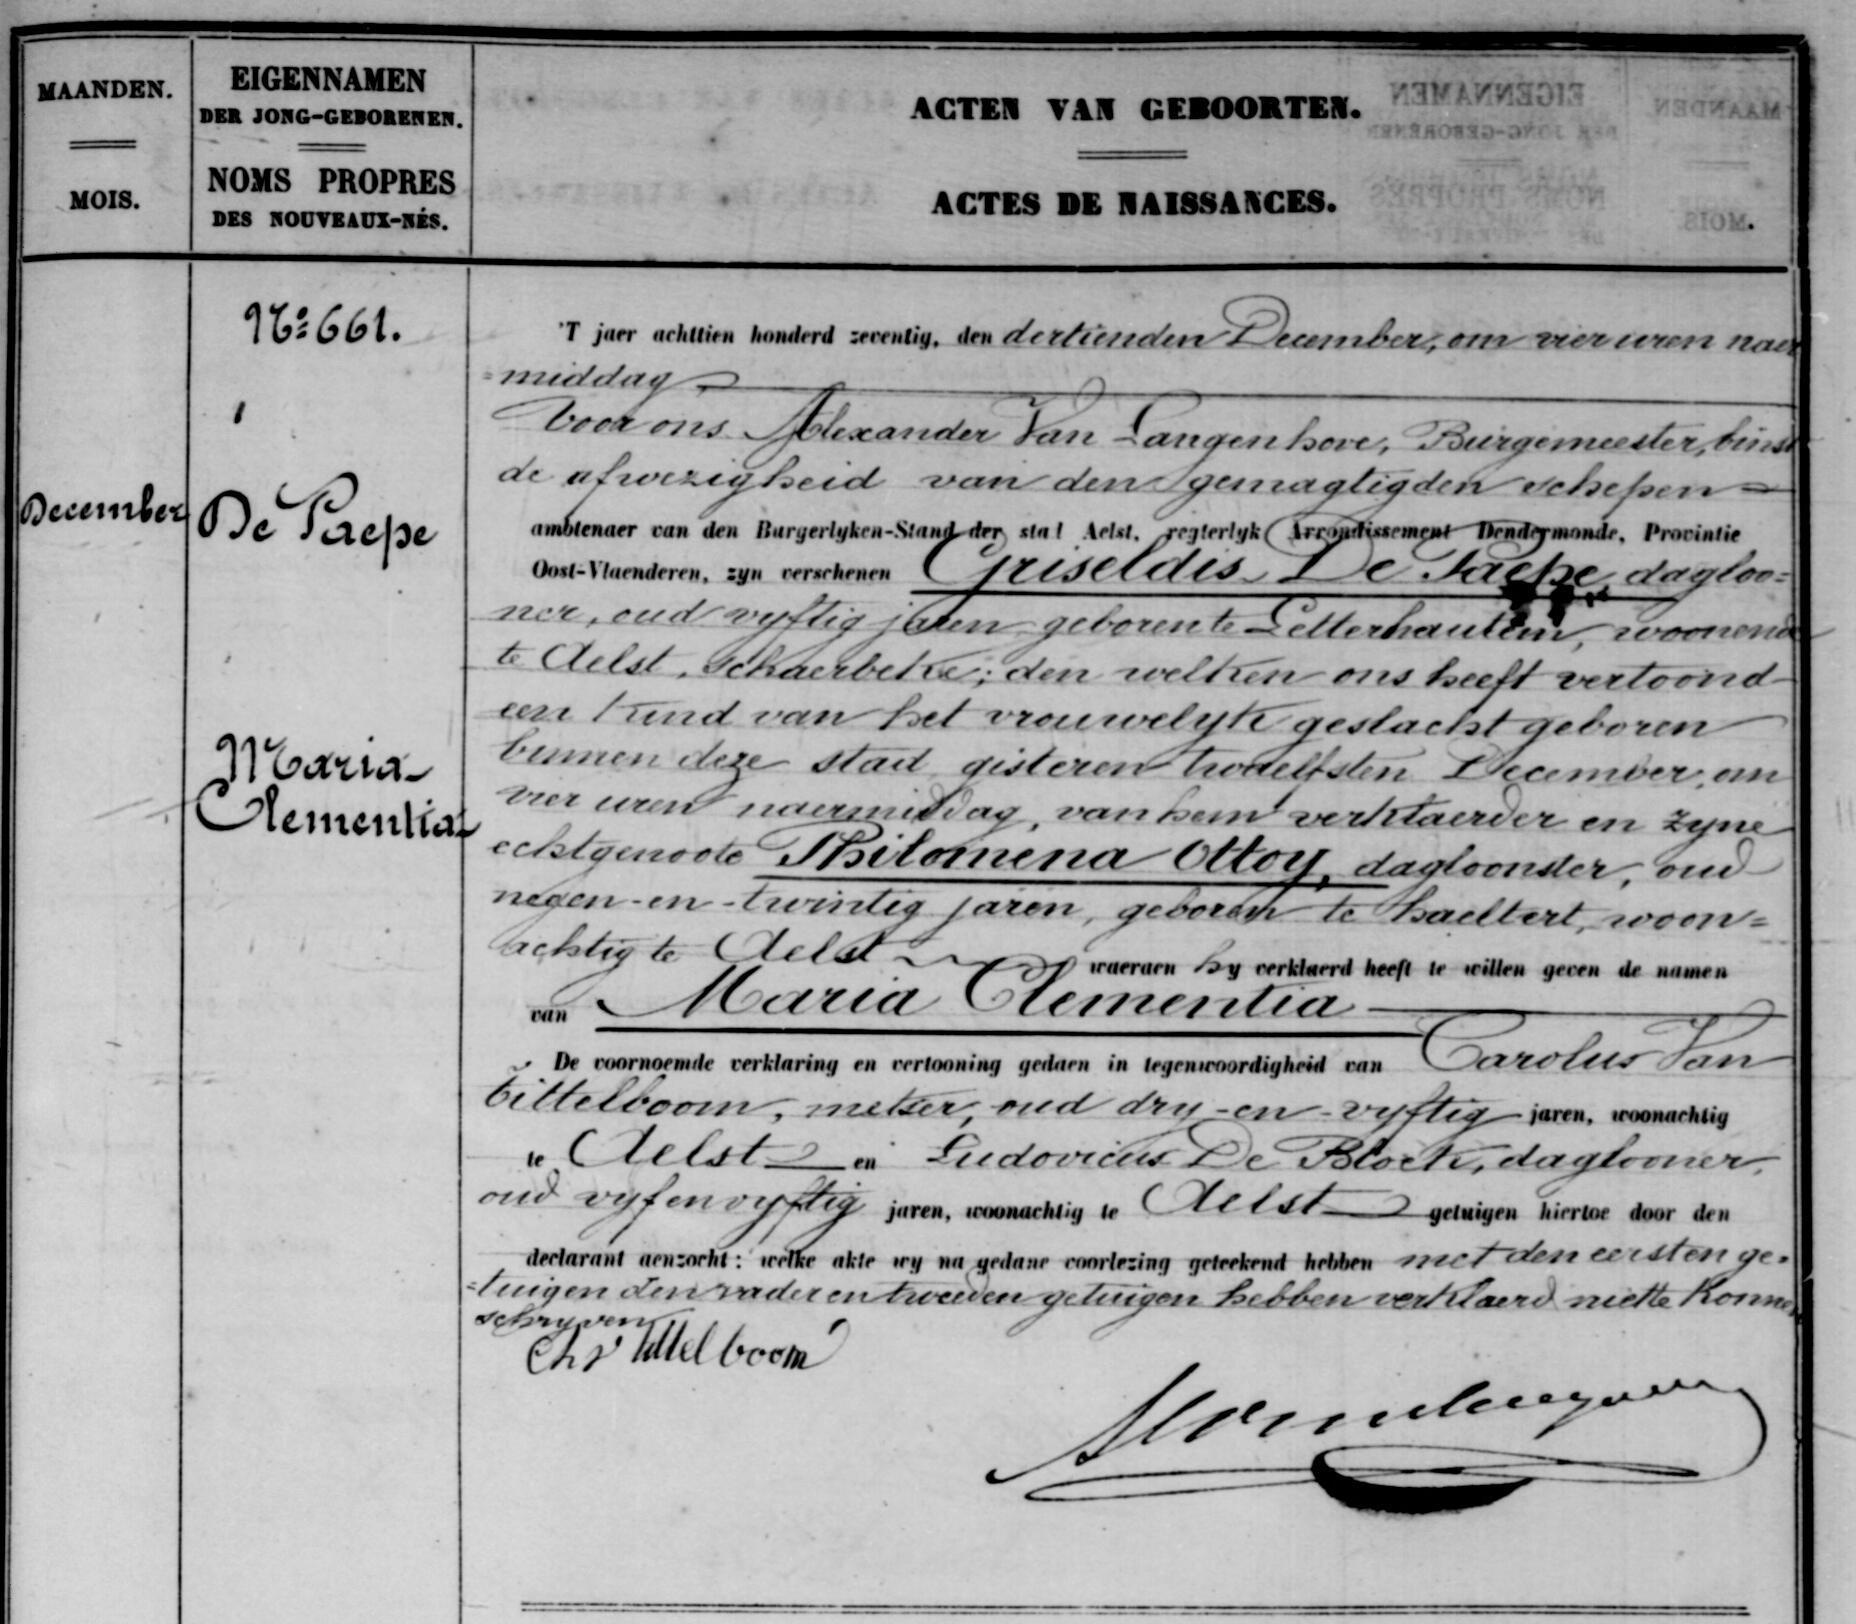 MAANDEN.
MOIS.
EIGENNAMEN
DER JONG-GEBORENEN.
NOMS PROPRES
DES NOUVEAUX-NÉS.
ACTEN VAN GEBOORTEN.
ACTES DE NAISSANCES.
No 661.
December
De Paepe
Maria
Clementia
'T jaer achttien honderd zeventig, den dertienden December, om vier uren naer
=middag
Voor ons Alexander Van Langenhove, Burgemeester, binst
de afwezigheid van den gemagtigden schepen
ambtenaer van den Burgerlyken-Stand der stad Aelst, regterlyk Arrondissement Dendermonde, Provintie
Oost-Vlaenderen, zyn verschenen Griseldis De Paepe, dagloo=
ner, oud vyftig jaren geboren te Letterhautem, woonende
te Aelst, Schaerbeke; den welken ons heeft vertoond
een kind van het vrouwelyk geslacht geboren
binnen deze stad gisteren twaelfsten December, om
vier uren naermiddag, van hem verklaerder en zyne
echtgenoote Philomena Ottoy, dagloonster, oud
negen-en-twintig jaren, geboren te Haeltert, woon=
achtig te Aelst waeraen hy verklaerd heeft te willen geven de namen
van Maria Clementia
De voornoemde verklaring en vertooning gedaen in tegenwoordigheid van Carolus Van
Tittelboom, metser, oud dry-en-vyftig jaren, woonachtig
te Aelst en Ludovicus De Block, daglooner,
oud vyf en vyftig jaren, woonachtig te Aelst getuigen hiertoe door den
declarant aenzocht: welke akte wy na gedane voorlezing geteekend hebben met den eersten ge=
=tuigen den vader en tweeden getuigen hebben verklaerd niet te konnen
schryven
Ch V Tittelboom